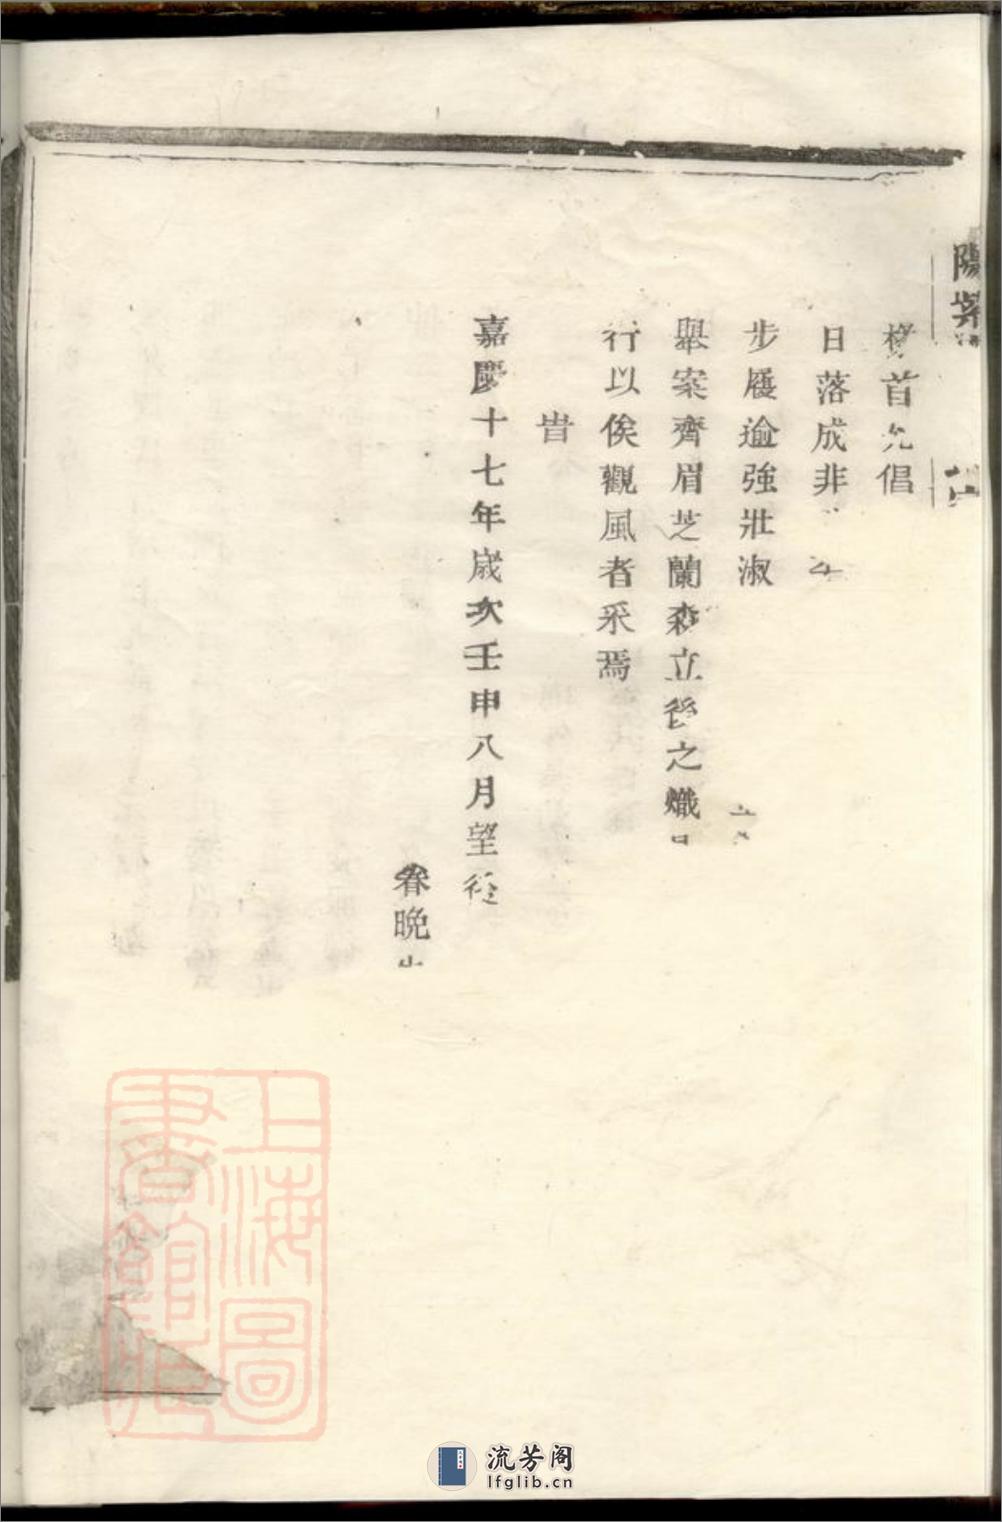 陽
首 倡
日落成非
步履逾強壯淑
舉案齊眉芝蘭森立後之熾
行以俟觀風者采焉
旹
嘉慶十七年歲次壬申八月望
眷晚
上海圖書館藏
流芳阁
lfglib.cn